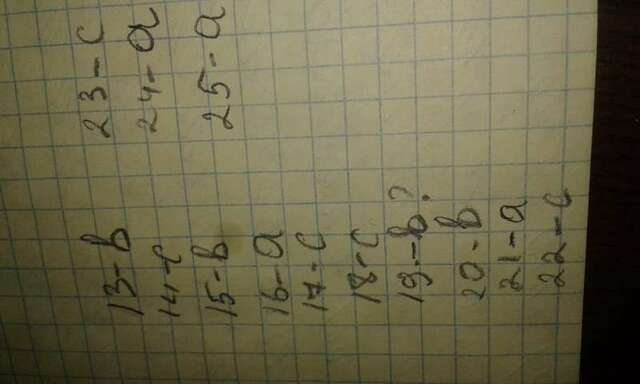 13-b
14-c
15-b
16-a
17-c
18-c
19-b?
20-b
21-a
22-c
23-c
24-a
25-a